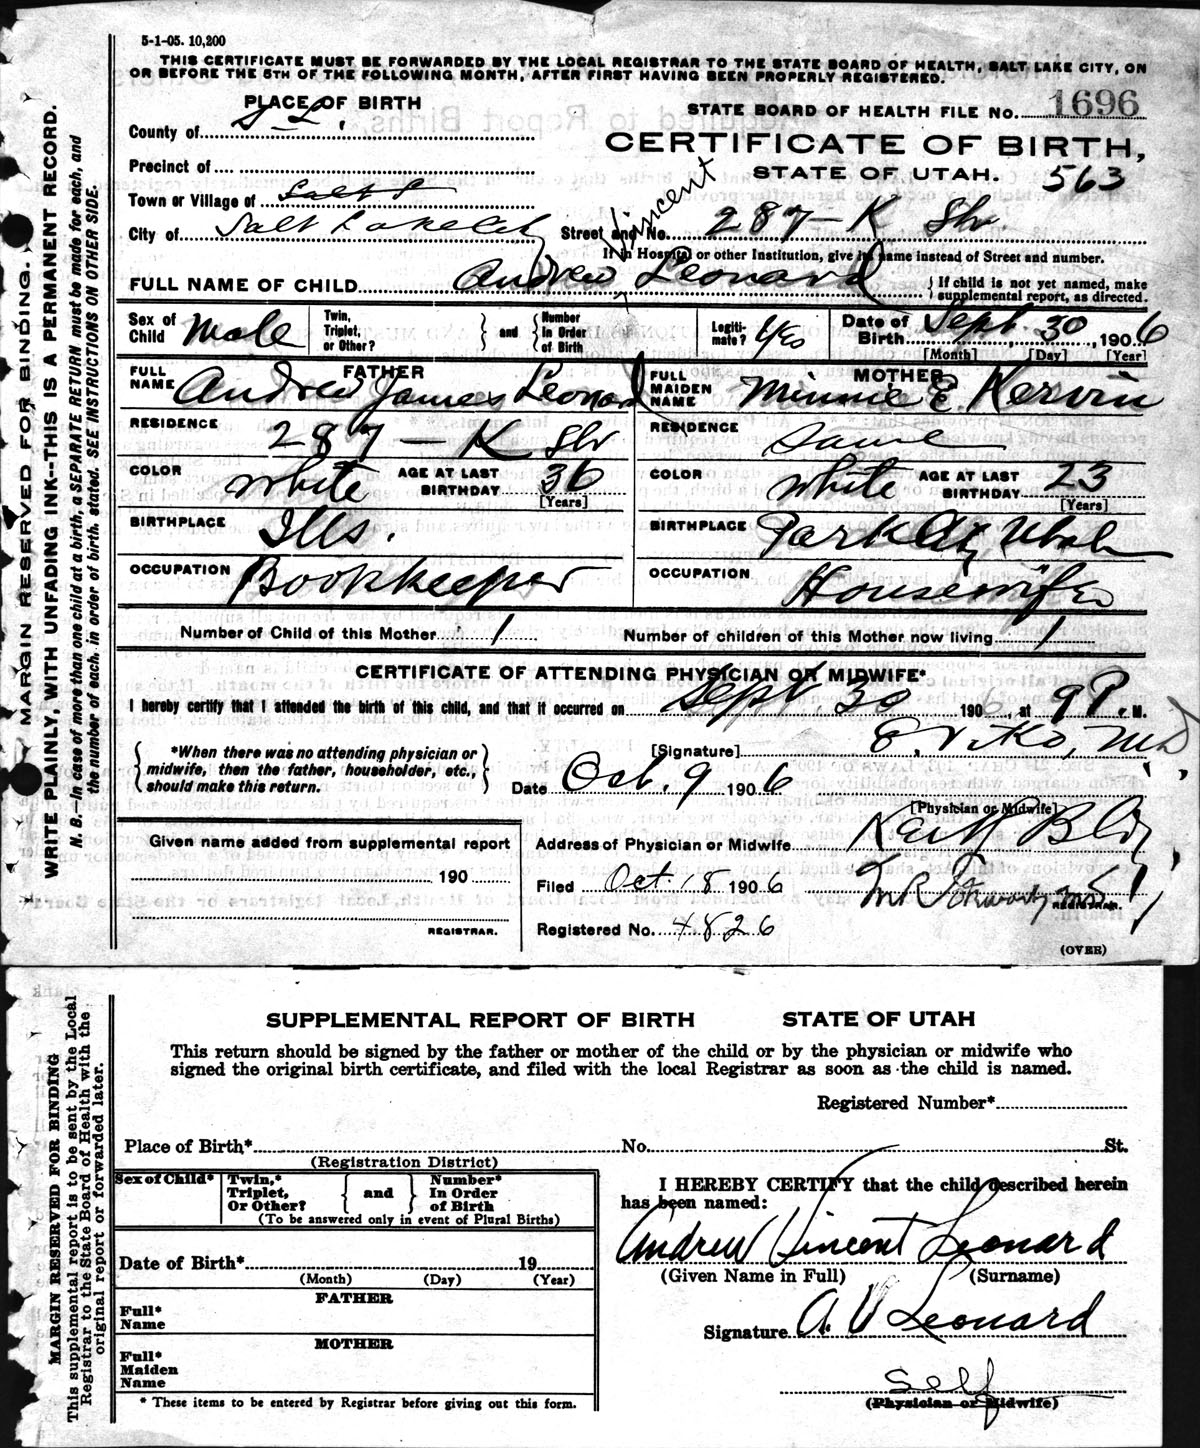 5-1-05. 10,200
THIS CERTIFICATE MUST BE FORWARDED BY THE LOCAL REGISTRAR TO THE STATE BOARD OF HEALTH, SALT LAKE CITY, ON
OR BEFORE THE 5TH OF THE FOLLOWING MONTH, AFTER FIRST HAVING BEEN PROPERLY REGISTERED.
MARGIN RESERVED FOR BINDING.
WRITE PLAINLY, WITH UNFADING INK--THIS IS A PERMANENT RECORD.
N. B.--In case of more than one child at a birth, a SEPARATE RETURN must be made for each, and
the number of each, in order of birth, stated. SEE INSTRUCTIONS ON OTHER SIDE.
PLACE OF BIRTH
STATE BOARD OF HEALTH FILE NO. 1696
County of S. L.
CERTIFICATE OF BIRTH,
Precinct of
STATE OF UTAH. 563
Town or Village of Salt L
City of Salt Lake City Street and No. 287 - K Str
If in Hospital or other Institution, give its name instead of Street and number.
Vincent
FULL NAME OF CHILD Andrew Leonard
If child is not yet named, make
supplemental report, as directed.
Sex of Child Male Twin, Triplet, or Other? and Number In Order of Birth Legitimate? Yes Date of Birth Sept. 30, 1906
[Month] [Day] [Year]
FATHER MOTHER
FULL NAME Andrew James Leonard FULL MAIDEN NAME Minnie E. Kervin
RESIDENCE 287 - K Str RESIDENCE Same
COLOR White AGE AT LAST BIRTHDAY 36 [Years] COLOR White AGE AT LAST BIRTHDAY 23 [Years]
BIRTHPLACE Ills. BIRTHPLACE Park City Utah
OCCUPATION Bookkeeper OCCUPATION Housewife
Number of Child of this Mother 1 Number of children of this Mother now living 1
CERTIFICATE OF ATTENDING PHYSICIAN OR MIDWIFE*
I hereby certify that I attended the birth of this child, and that it occurred on Sept. 30 1906, at 9 P. M.
*When there was no attending physician or
midwife, then the father, householder, etc.,
should make this return.
[Signature] M.D.
Date Oct. 9 1906
[Physician or Midwife]
Given name added from supplemental report
Address of Physician or Midwife
190
Filed Oct. 18 1906
REGISTRAR.
REGISTRAR.
Registered No. 4826
(OVER)
MARGIN RESERVED FOR BINDING
This supplemental report is to be sent by the Local
Registrar to the State Board of Health with the
original report or forwarded later.
SUPPLEMENTAL REPORT OF BIRTH STATE OF UTAH
This return should be signed by the father or mother of the child or by the physician or midwife who
signed the original birth certificate, and filed with the local Registrar as soon as the child is named.
Registered Number*
Place of Birth* No. St.
(Registration District)
Sex of Child* Twin,* Triplet, Or Other? and Number* In Order of Birth
(To be answered only in event of Plural Births)
I HEREBY CERTIFY that the child described herein
has been named:
Andrew Vincent Leonard
Date of Birth* 19
(Month) (Day) (Year)
(Given Name in Full) (Surname)
FATHER
Full* Name
Signature A. V Leonard
MOTHER
Full* Maiden Name
self
(Physician or Midwife)
* These items to be entered by Registrar before giving out this form.